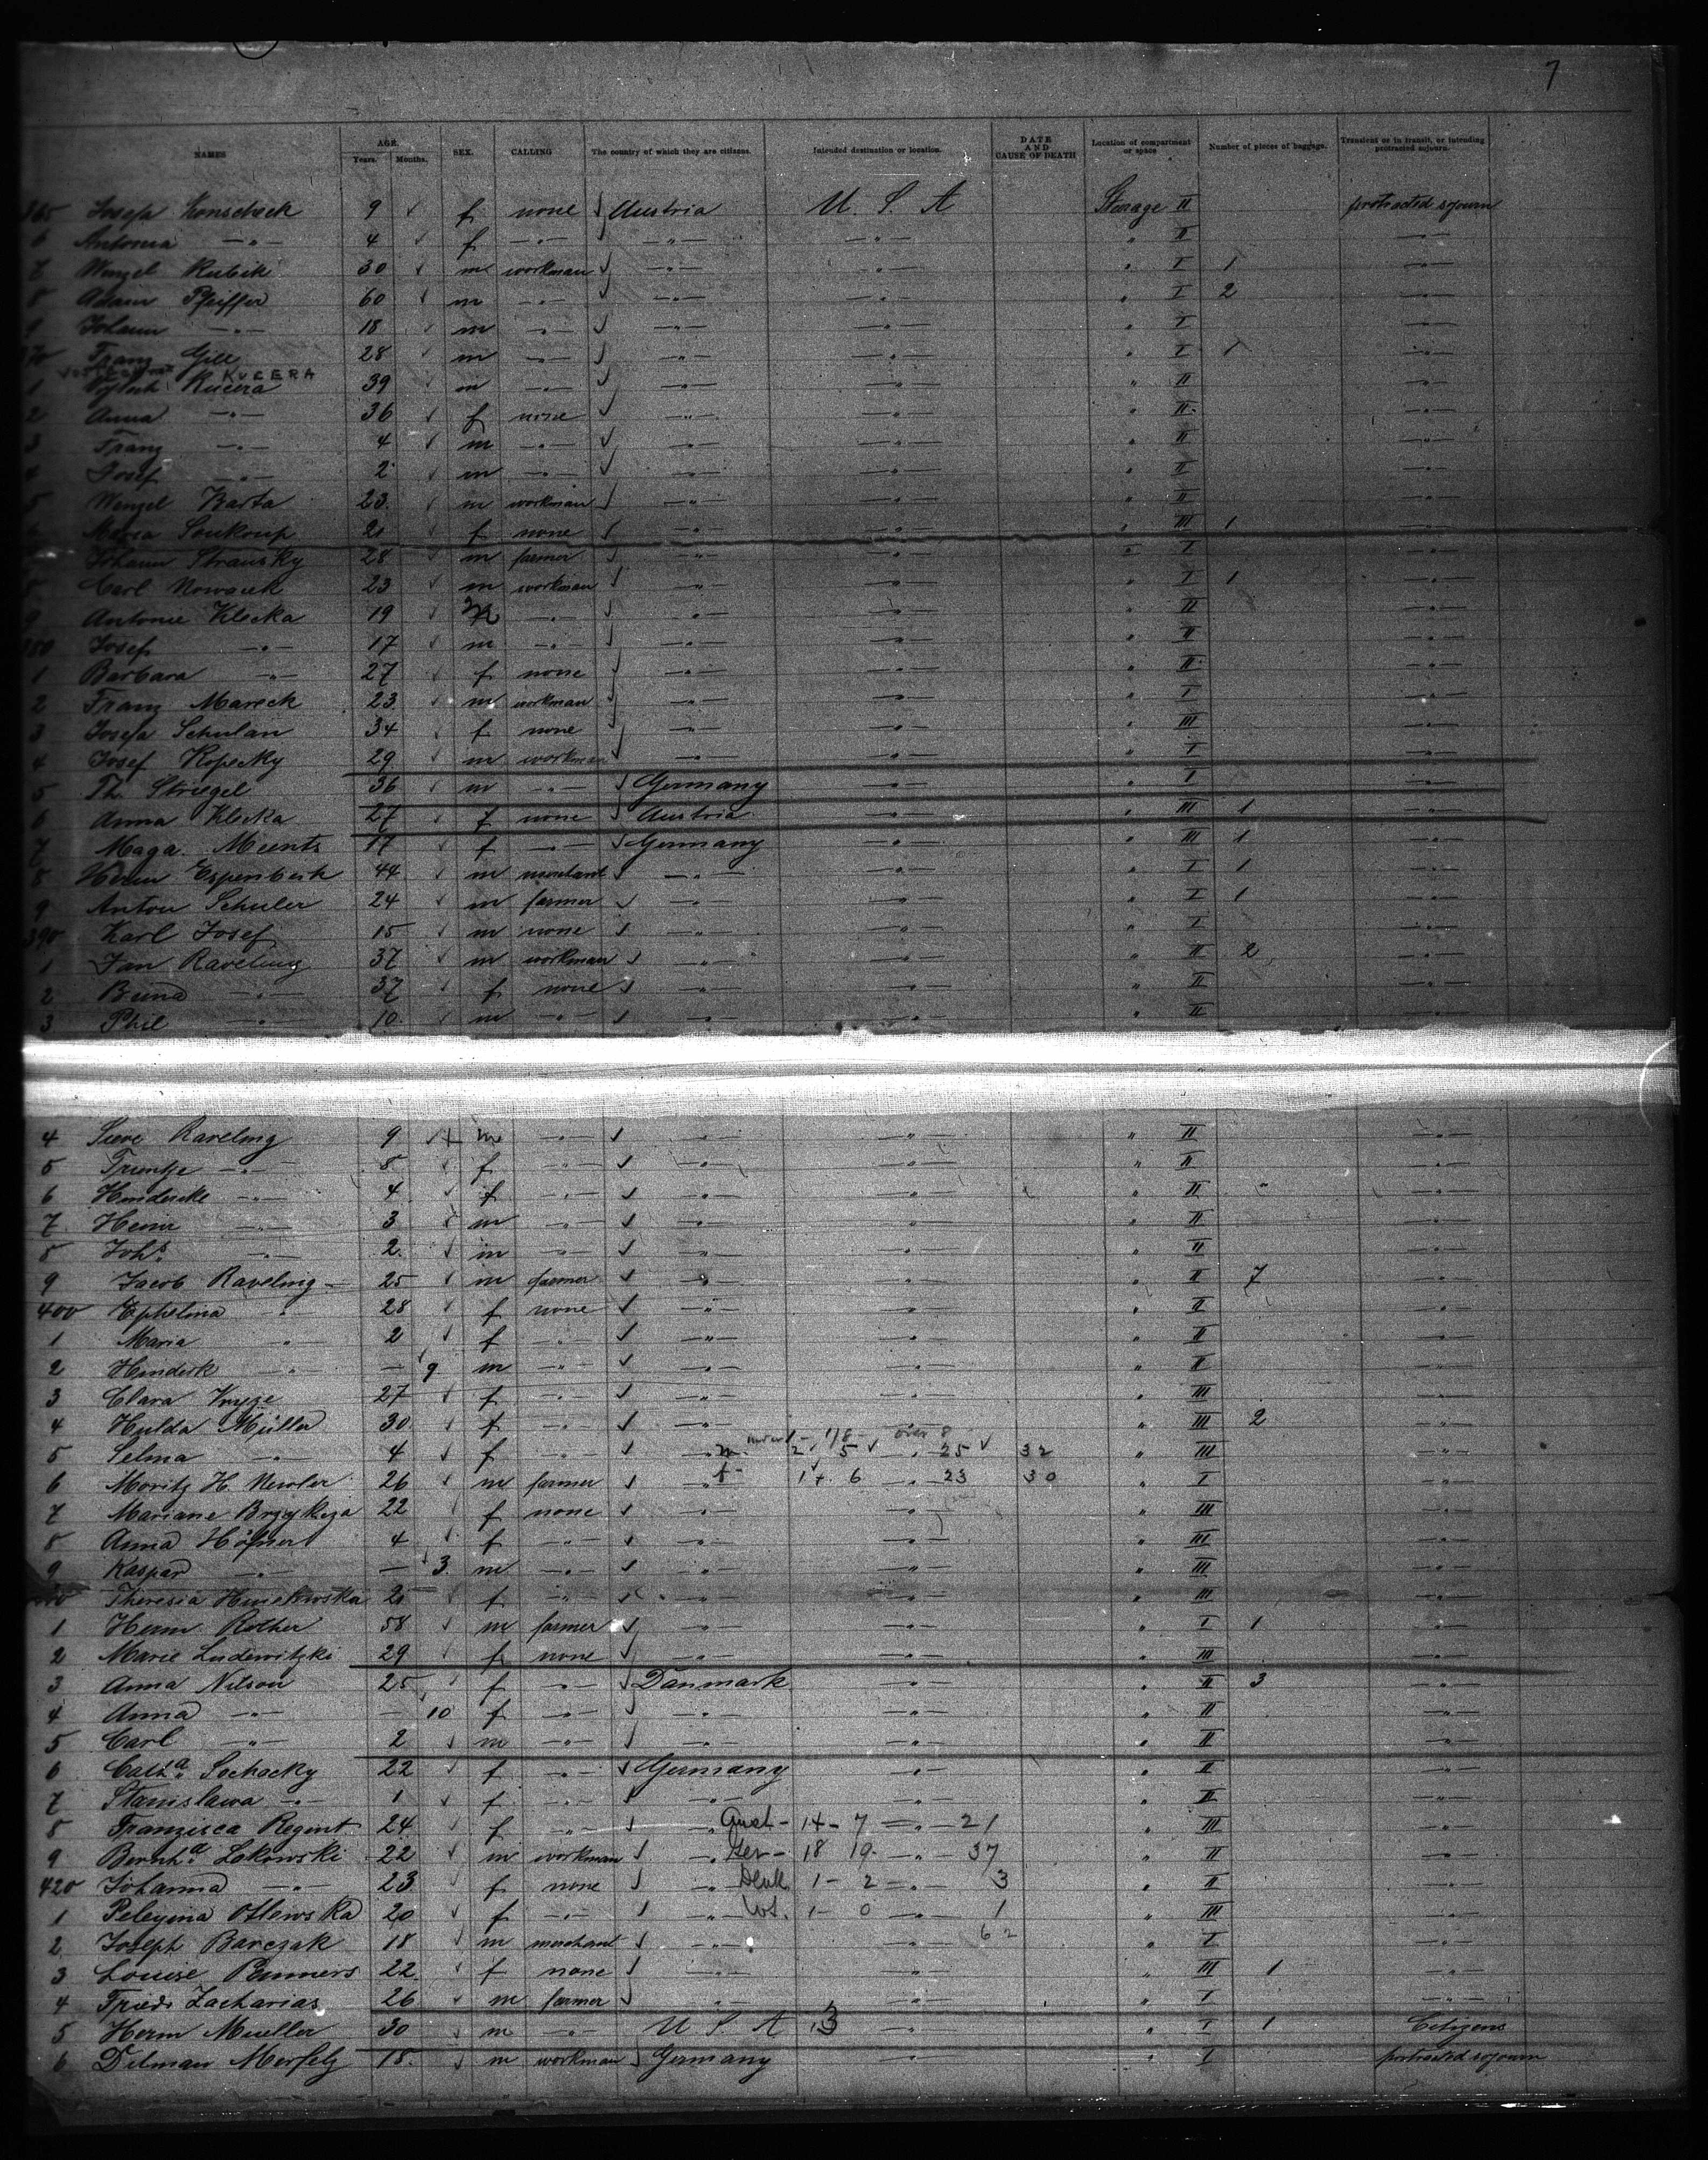 7
NAMES AGE. Years. Months. SEX. CALLING The country of which they are citizens. Intended destination or location. DATE AND CAUSE OF DEATH Location of compartment or space Number of pieces of baggage. Transient or in transit, or intending protracted sojourn.
365 Josefa 9 f none Austria U. S. A Steerage II protracted sojourn
6 Antonia —"— 4 f —"— —"— —"— " II —"—
7 Wenzel Kubik 30 m workman —"— —"— " I 1 —"—
8 Adam Pfeiffer 60 m —"— —"— —"— " I 2 —"—
9 Johann —"— 18 m —"— —"— —"— " I —"—
370 Franz Gill 28 m —"— —"— —"— " I 1 —"—
KUCERA
1 Kucera 39 m —"— —"— —"— " II —"—
2 Anna —"— 36 f none —"— —"— " II —"—
3 Franz —"— 4 m —"— —"— —"— " II —"—
4 Josef —"— 2 m —"— —"— —"— " II —"—
5 Wenzel Barta 23 m workman —"— —"— " II —"—
6 Maria Soukoup 21 f none —"— —"— " III 1 —"—
Johann Stransky 28 m farmer —"— —"— " I —"—
8 Carl Nowacek 23 m workman —"— —"— " I 1 —"—
9 Antonie Klecka 19 —"— —"— —"— " II —"—
380 Josef —"— 17 m —"— —"— —"— " II —"—
1 Barbara —"— 27 f none —"— —"— " II —"—
2 Franz Mareck 23 m workman —"— —"— " I —"—
3 Josefa Schulan 34 f none —"— —"— " III —"—
4 Josef Kopecky 29 m workman —"— —"— " I —"—
5 Th. Striegel 36 m —"— Germany —"— " I —"—
6 Anna Klecka 27 f none Austria —"— " III 1 —"—
7 Maga. Meents 17 f —"— Germany —"— " III 1 —"—
8 Herm 44 m merchant —"— —"— " I 1 —"—
9 Anton Schuler 24 m farmer —"— —"— " I 1 —"—
390 Karl Josef 15 m none —"— —"— " I —"—
1 Jan Raveling 37 m workman —"— —"— " II 2 —"—
2 —"— 37 f none —"— —"— " II —"—
3 Phil —"— 10 m —"— —"— —"— " II —"—
4 Raveling 9 m —"— —"— —"— " II —"—
5 Trientje —"— 8 f —"— —"— —"— " II —"—
6 Hendericke —"— 4 f —"— —"— —"— " II —"—
7 Heinr —"— 3 m —"— —"— —"— " II —"—
8 Johs. —"— 2 m —"— —"— —"— " II —"—
9 Jacob Raveling 25 m farmer —"— —"— " II 7 —"—
400 Ephelina " 28 f none —"— —"— " II —"—
1 Maria " 2 f —"— —"— —"— " II —"—
2 Henderk " — 9 m —"— —"— —"— " II —"—
3 Clara 27 f —"— —"— —"— " III —"—
4 Hulda Müller 30 f —"— —"— —"— " III 2 —"—
under 1 – 1/8 – over 8
5 Selma —"— 4 f —"— m. 2 5 " 25 32 " III —"—
6 Moritz H. 26 m farmer f – 1 + 6 " 23 30 " I —"—
7 Mariane 22 f none —"— —"— " III —"—
8 Anna Höfner 4 f —"— —"— —"— " III —"—
9 Kaspar —"— — 3 m —"— —"— —"— " III —"—
Theresia 21 f —"— —"— —"— " III —"—
1 Herm Rother 58 m farmer —"— —"— " I 1 —"—
2 Marie Ludewitzki 29 f none —"— —"— " III —"—
3 Anna Nilson 25 f —"— Danmark —"— " II 3 —"—
4 Anna —"— — 10 f —"— —"— —"— " II —"—
5 Carl —"— 2 m —"— —"— —"— " II —"—
6 Catha. Sochacky 22 f —"— Germany —"— " II —"—
7 Stanislawa —"— 1 f —"— —"— —"— " II —"—
8 Franzisca Regent 24 f —"— Aust – 14 – 7 = 21 " III —"—
9 Bernha. Lokowski 22 m workman Ger – 18 19 – " 37 " II —"—
420 Johanna —"— 23 f none Denk 1 – 2 – 3 " II —"—
1 Pelegina Otlewska 20 f —"— U.S. 1 – 0 — 1 " III —"—
62
2 Joseph Barczak 18 m merchant —"— —"— " I —"—
3 Louise Remmers 22 f none —"— —"— " III 1 —"—
4 Friedr Zacharias 26 m farmer —"— —"— " I —"—
5 Herm Mueller 30 m —"— U S A 13 —"— " I 1 Citizens
6 Dilman Merfelz 18 m workman Germany —"— " I protracted sojourn